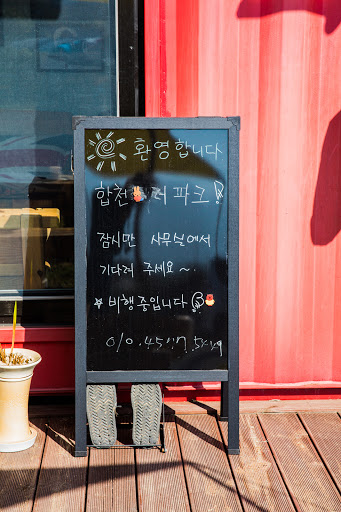 환영합니다
합천 파크!
잠시만 사무실에서
기다려 주세요~.
☆ 비행중입니다